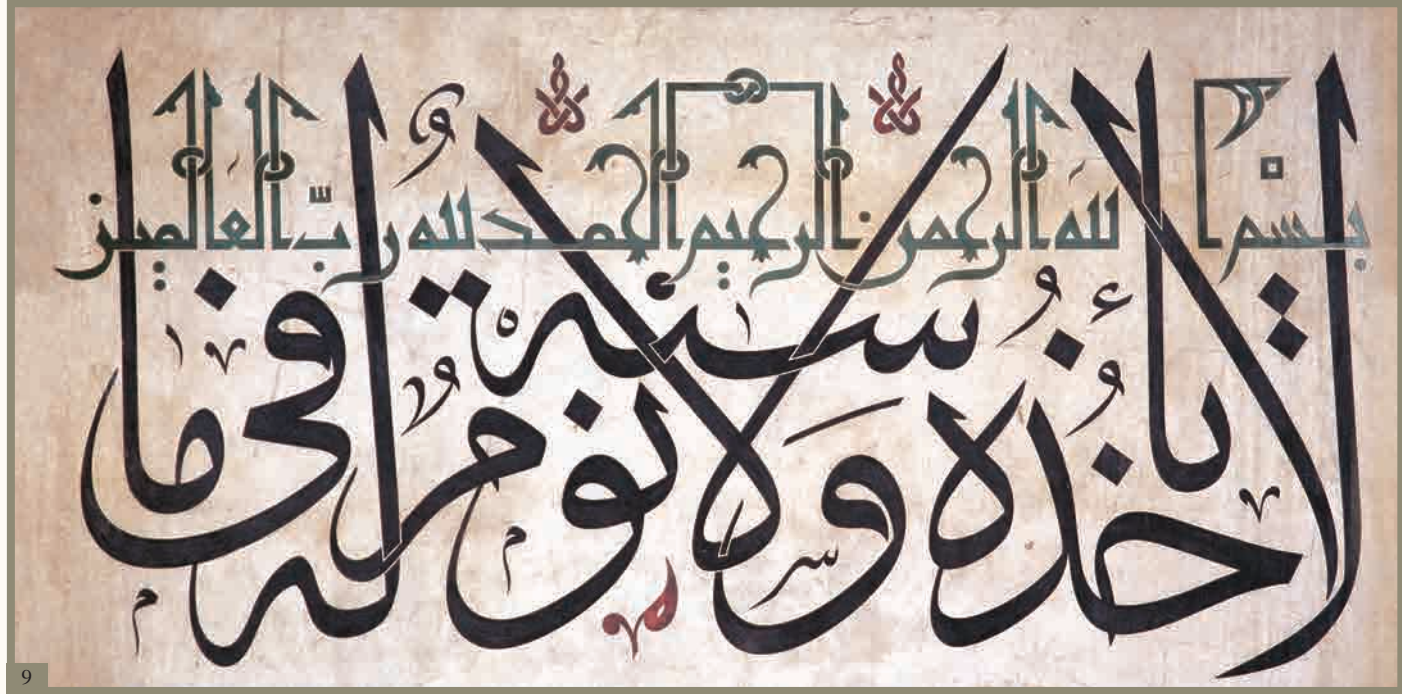 بسم الله الرحمن الرحيم الحمد لله رب العالمين
لا تأخذه سنة ولا نوم له ما في
9